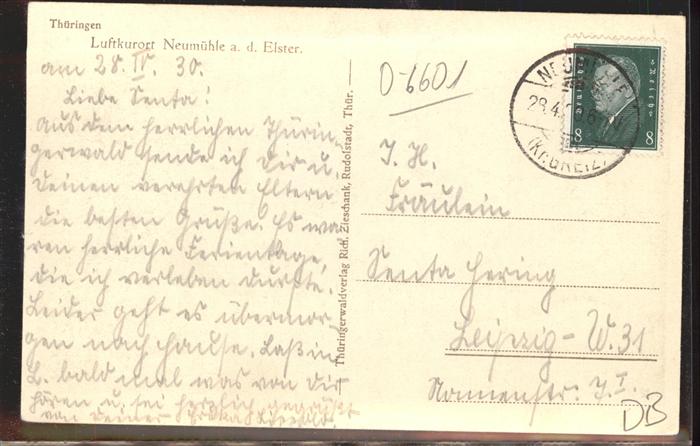 Thüringen
Luftkurort Neumühle a. d. Elster.
am 28. IV. 30.
Liebe Senta!
Aus dem herrlichen Thürin-
gerwald sende ich Dir u.
Deinen verehrten Eltern
die besten Grüße. Es wa-
ren herrliche Ferientage,
die ich verleben durfte.
Leider geht es übermor-
gen nach Hause. Laß in
L. bald mal was von Dir
hören u. sei herzlich gegrüßt
von Deiner
Thüringerwaldverlag Rich. Zieschank, Rudolstadt, Thür.
0-6601
NEUMÜHLE
28.4.
(Kr. GREIZ)
Deutsches Reich
8 8
Fräulein
Senta Hering
Leipzig-W. 31
Nonnenstr.
DB